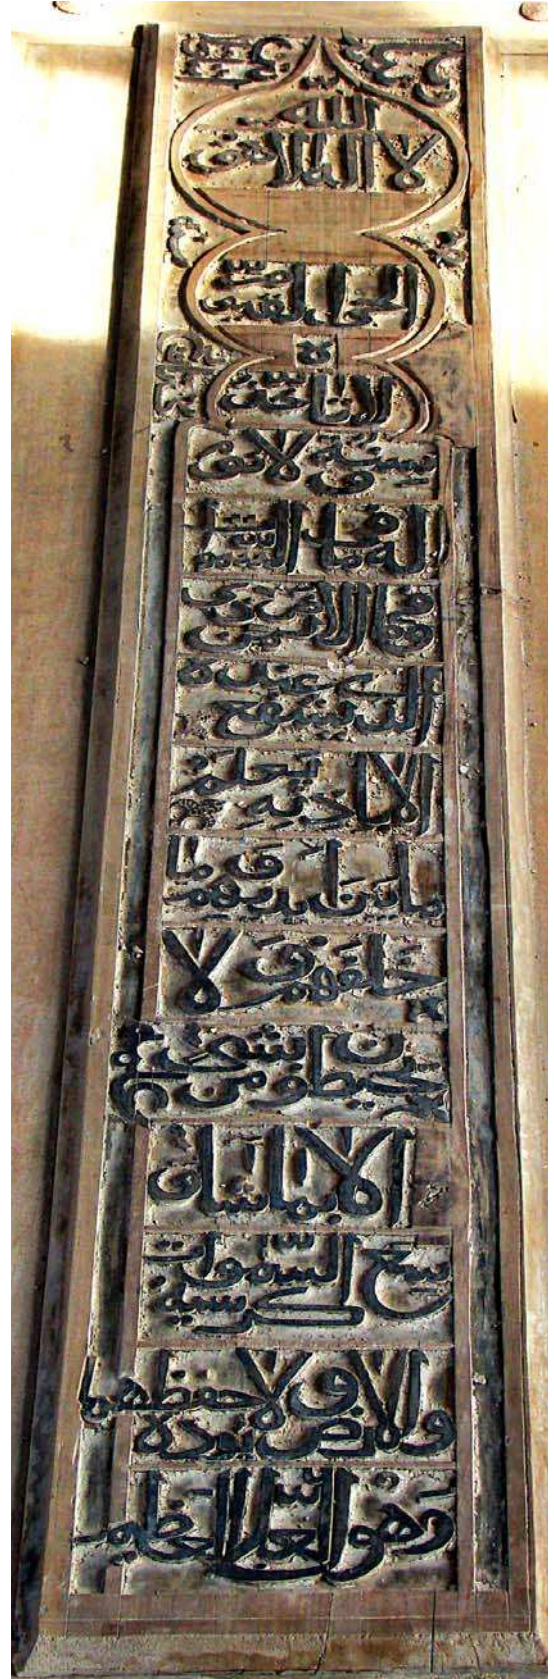 الله
لا اله الا هو
الحي القيوم
لا تاخذه
سنة و لا نوم
له ما في السموات
وما في الارض من ذى
الذي يشفع عنده
الا باذنه يعلم
ما بين ايديهم و ما
خلفهم و لا
يحيطون بشئ من
الا بما شاء و
سع السموات كرسيه
والارض و لا يوده حفظهما
وهو العلي العظيم